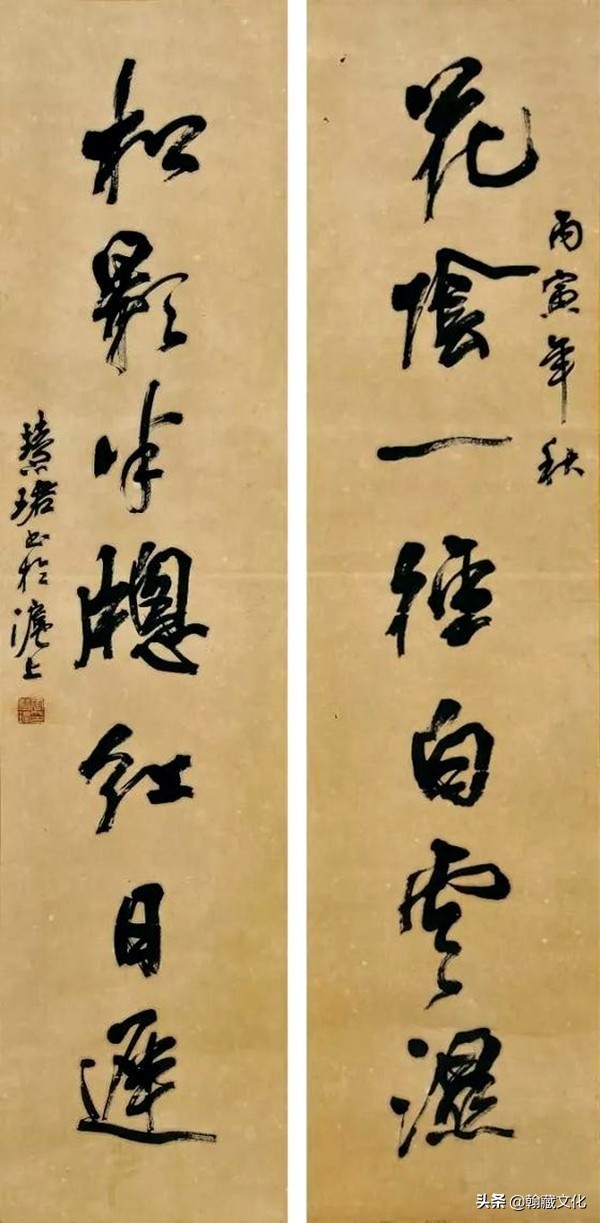 丙寅年秋
花陰一徑白雲濕
松影半牕紅日遲
慧珺书於滬上
头条 @翰藏文化